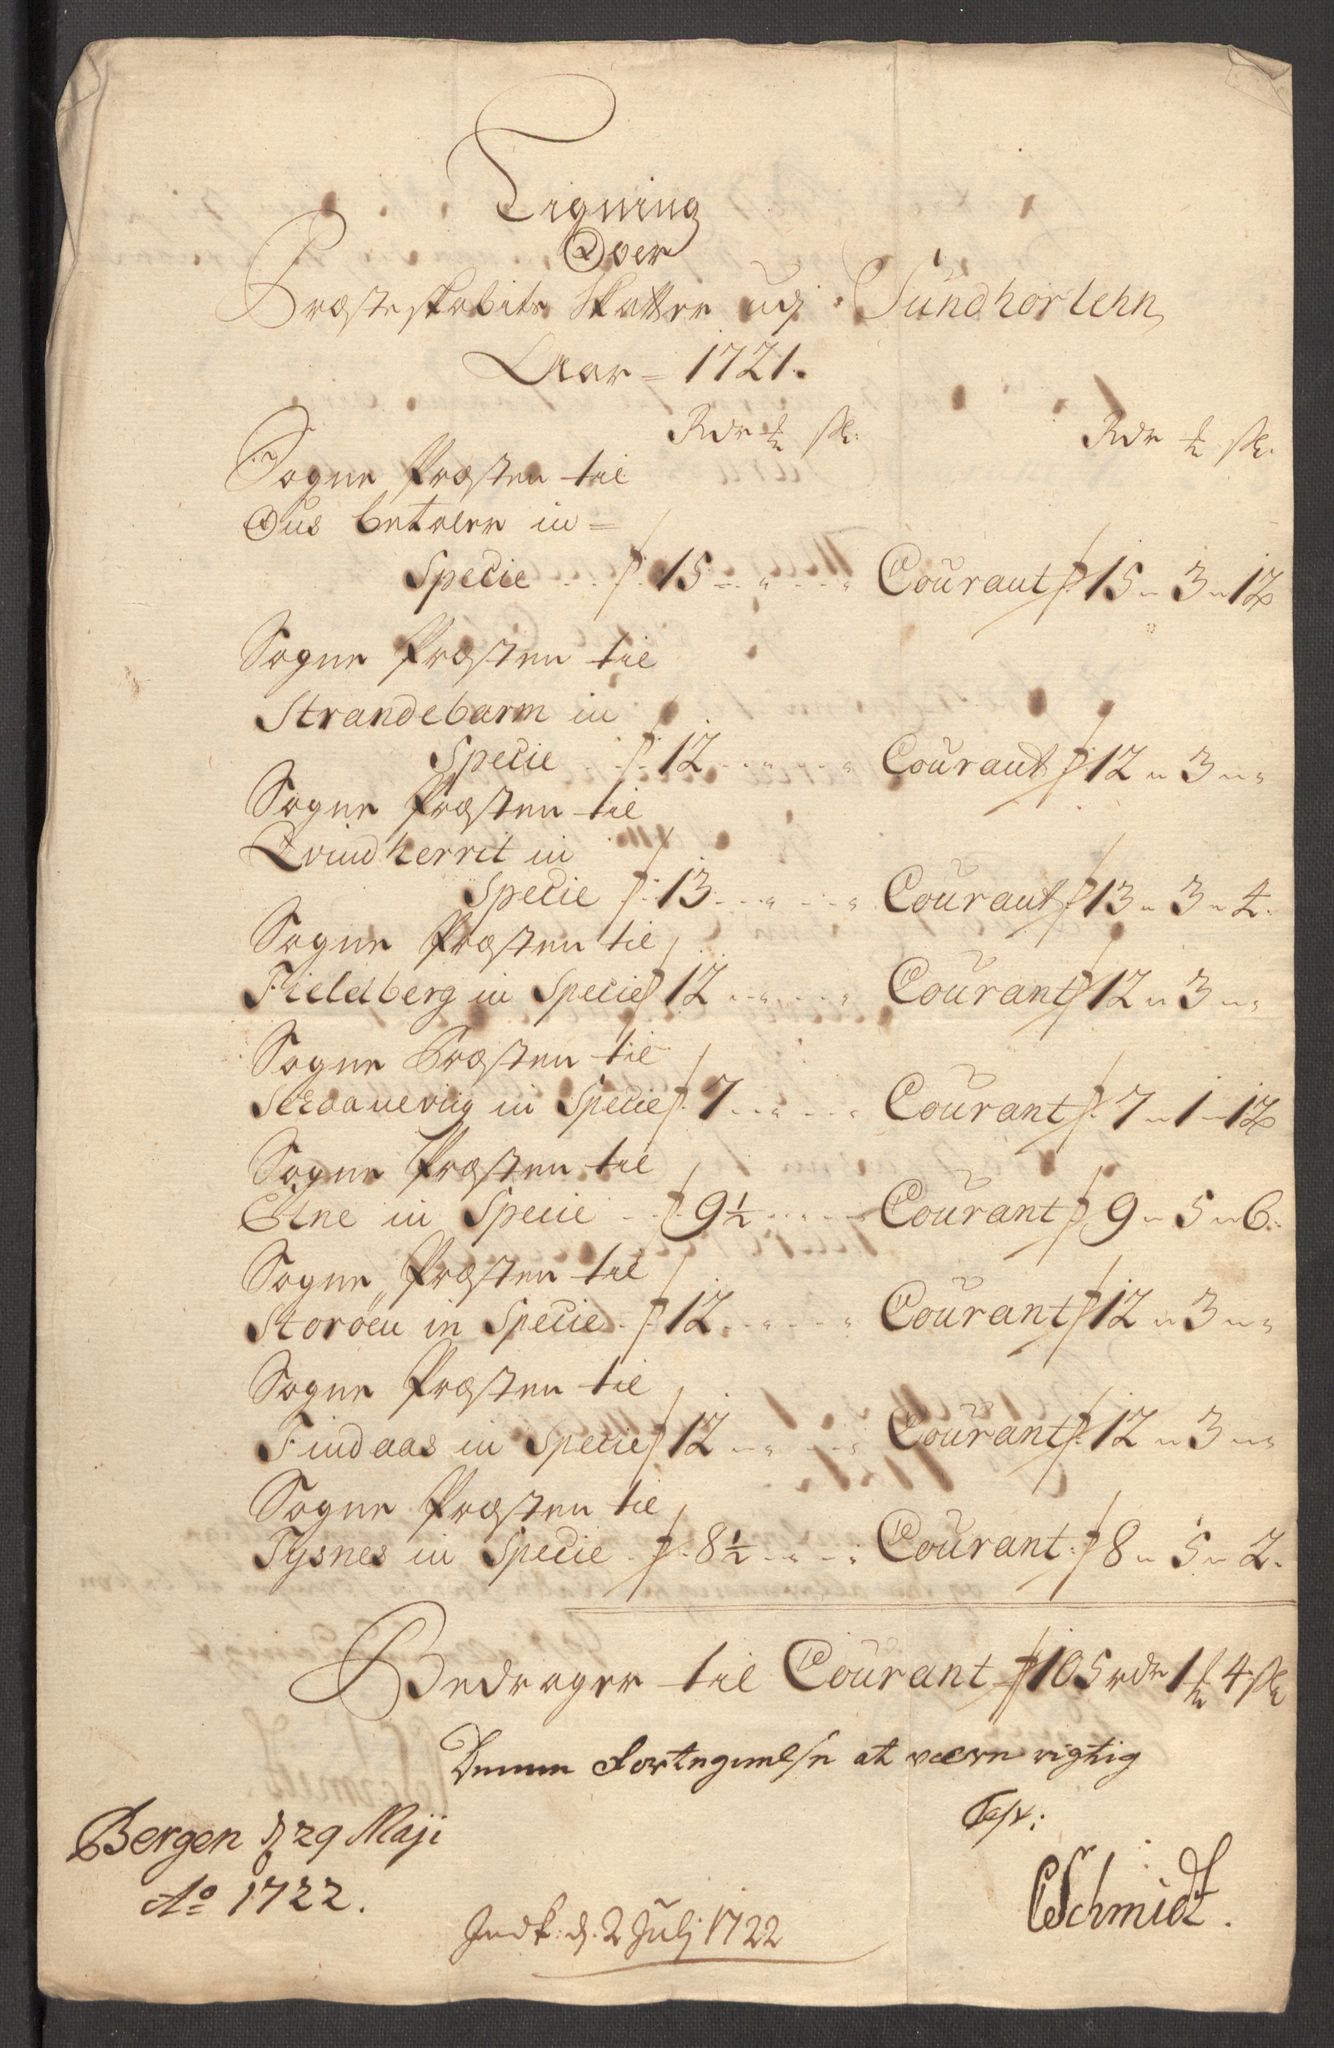 Ligning
Over
Præsteskabits Skatter udj Sundhorlehn
Aar 1721.
Rdr ß:
Rdr ß:
Sogne Præsten til
Ous betaler in
Specie 15 Courant 15 3 12
Sogne Præsten til
Strandebarm in
Specie 12 Courant 12 3 "
Sogne Præsten til
Qvindherrit in
Specie 13 Courant 13 3 4.
Sogne Præsten til
Fieldberg in Specie 12 Courant 12 3 "
Sogne Præsten til
Schaanevig in Specie 7 Courant 7 1 12
Sogne Præsten til
Etne in Specie 9½ Courant 9 5 6.
Sogne Præsten til
Storøen in Specie 12 Courant 12 3 "
Sogne Præsten til
Findaas in Specie 12 Courant 12 3 "
Sogne Præsten til
Tysnes in Specie 8½ Courant 8 5 2.
Bedrager til Courant 105 rdr 1 4 ß
Denne Fortegnelse at være rigtig
Test:
Bergen d 29 Maji
Ao 1722.
CSchmidt.
Indk: d. 2 Julj 1722